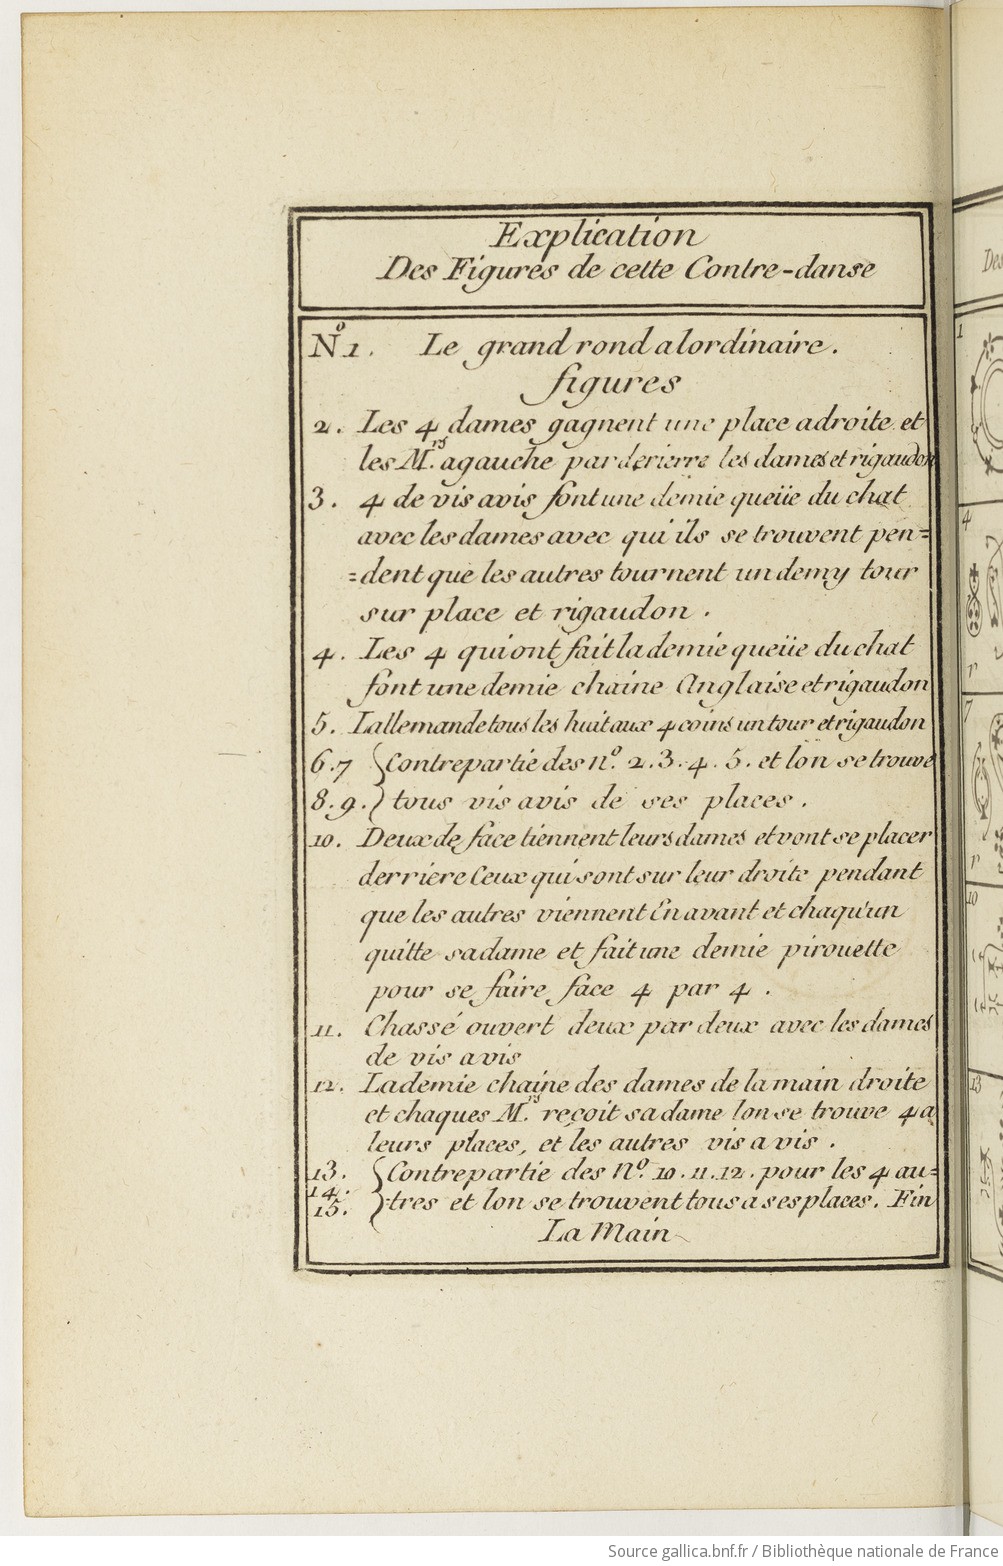 Explication
Des Figures de cette Contre-danse
No 1. Le grand rond alordinaire.
figures
2. Les 4 dames gagnent une place adroite et
les M.rs agauche par derierre les dames et rigaudon
3. 4 de vis avis font une demie queüe du chat
avec les dames avec qui ils se trouvent pen=
=dent que les autres tournent un demy tour
sur place et rigaudon.
4. Les 4 qui ont fait la demie queüe du chat
font une demie chaine Anglaise et rigaudon
5. Lallemande tous les huit aux 4 coins un tour et rigaudon
6.7 Contrepartie des no. 2.3.4.5. et lon se trouve
8.9. tous vis avis de ses places.
10. Deux de face tiennent leurs dames et vont se placer
derriere Ceux qui sont sur leur droite pendant
que les autres viennent En avant et chaqu'un
quitte sa dame et fait une demie pirouette
pour se faire face 4 par 4.
11. Chassé ouvert deux par deux avec les dames
de vis avis
12. La demie chaine des dames de la main droite
et chaques M.rs reçoit sa dame lon se trouve 4 a
leurs places, et les autres vis a vis.
13. Contrepartie des No. 10.11.12. pour les 4 au=
14.
15. tres et lon se trouvent tous a ses places. Fin
La Main
Des
1
4
7
10
13
Source gallica.bnf.fr / Bibliothèque nationale de France